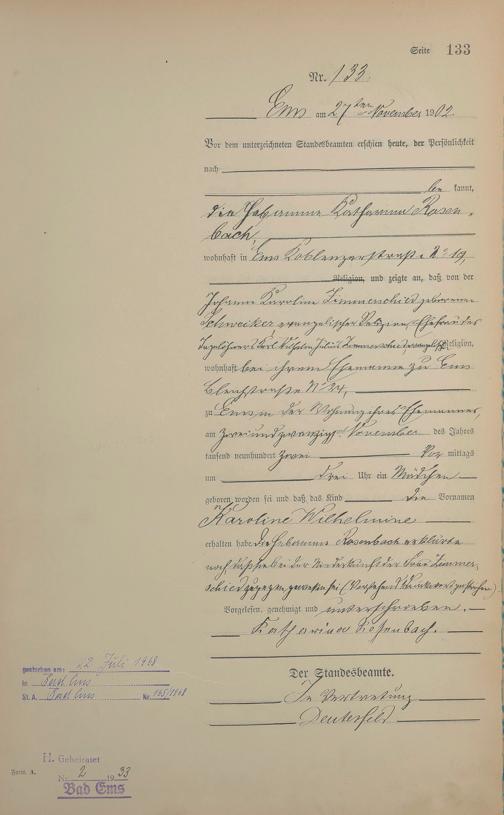 Seite 133
Nr. 133.
Ems am 27ten November 1902.
Vor dem unterzeichneten Standesbeamten erschien heute, der Persönlichkeit
nach
be kannt,
die Hebamme Katharina Rosen-
bach,
wohnhaft in Ems Koblenzerstraße No 19,
Religion, und zeigte an, daß von der
Johanna Karoline Zimmerschied geborenen
Schweiker evangelischer Religion, Ehefrau des
Karl Wilhelm Julius Zimmerschied Religion,
wohnhaft bei ihrem Ehemanne zu Ems
No 34,
zu Ems in der Wohnung ihres Ehemannes,
am zweiundzwanzigsten November des Jahres
tausend neunhundert zwei Vor mittags
um drei Uhr ein Mädchen
geboren worden sei und daß das Kind die Vornamen
Karoline Wilhelmine
erhalten habe. Die Hebamme Rosenbach erklärte
daß sie bei der Niederkunft der Frau Zimmer-
schied zugegen gewesen sei (Vorstehend Druckwort gestrichen)
Vorgelesen, genehmigt und unterschrieben.
Katharina Rosenbach.
Der Standesbeamte.
In Vertretung
gestorben am: 12 Juli 1968
in Bad Ems
St. A. Bad Ems Nr. 165/1968
H. Geheiratet
Form. A.
Nr. 2 1933
Bad Ems